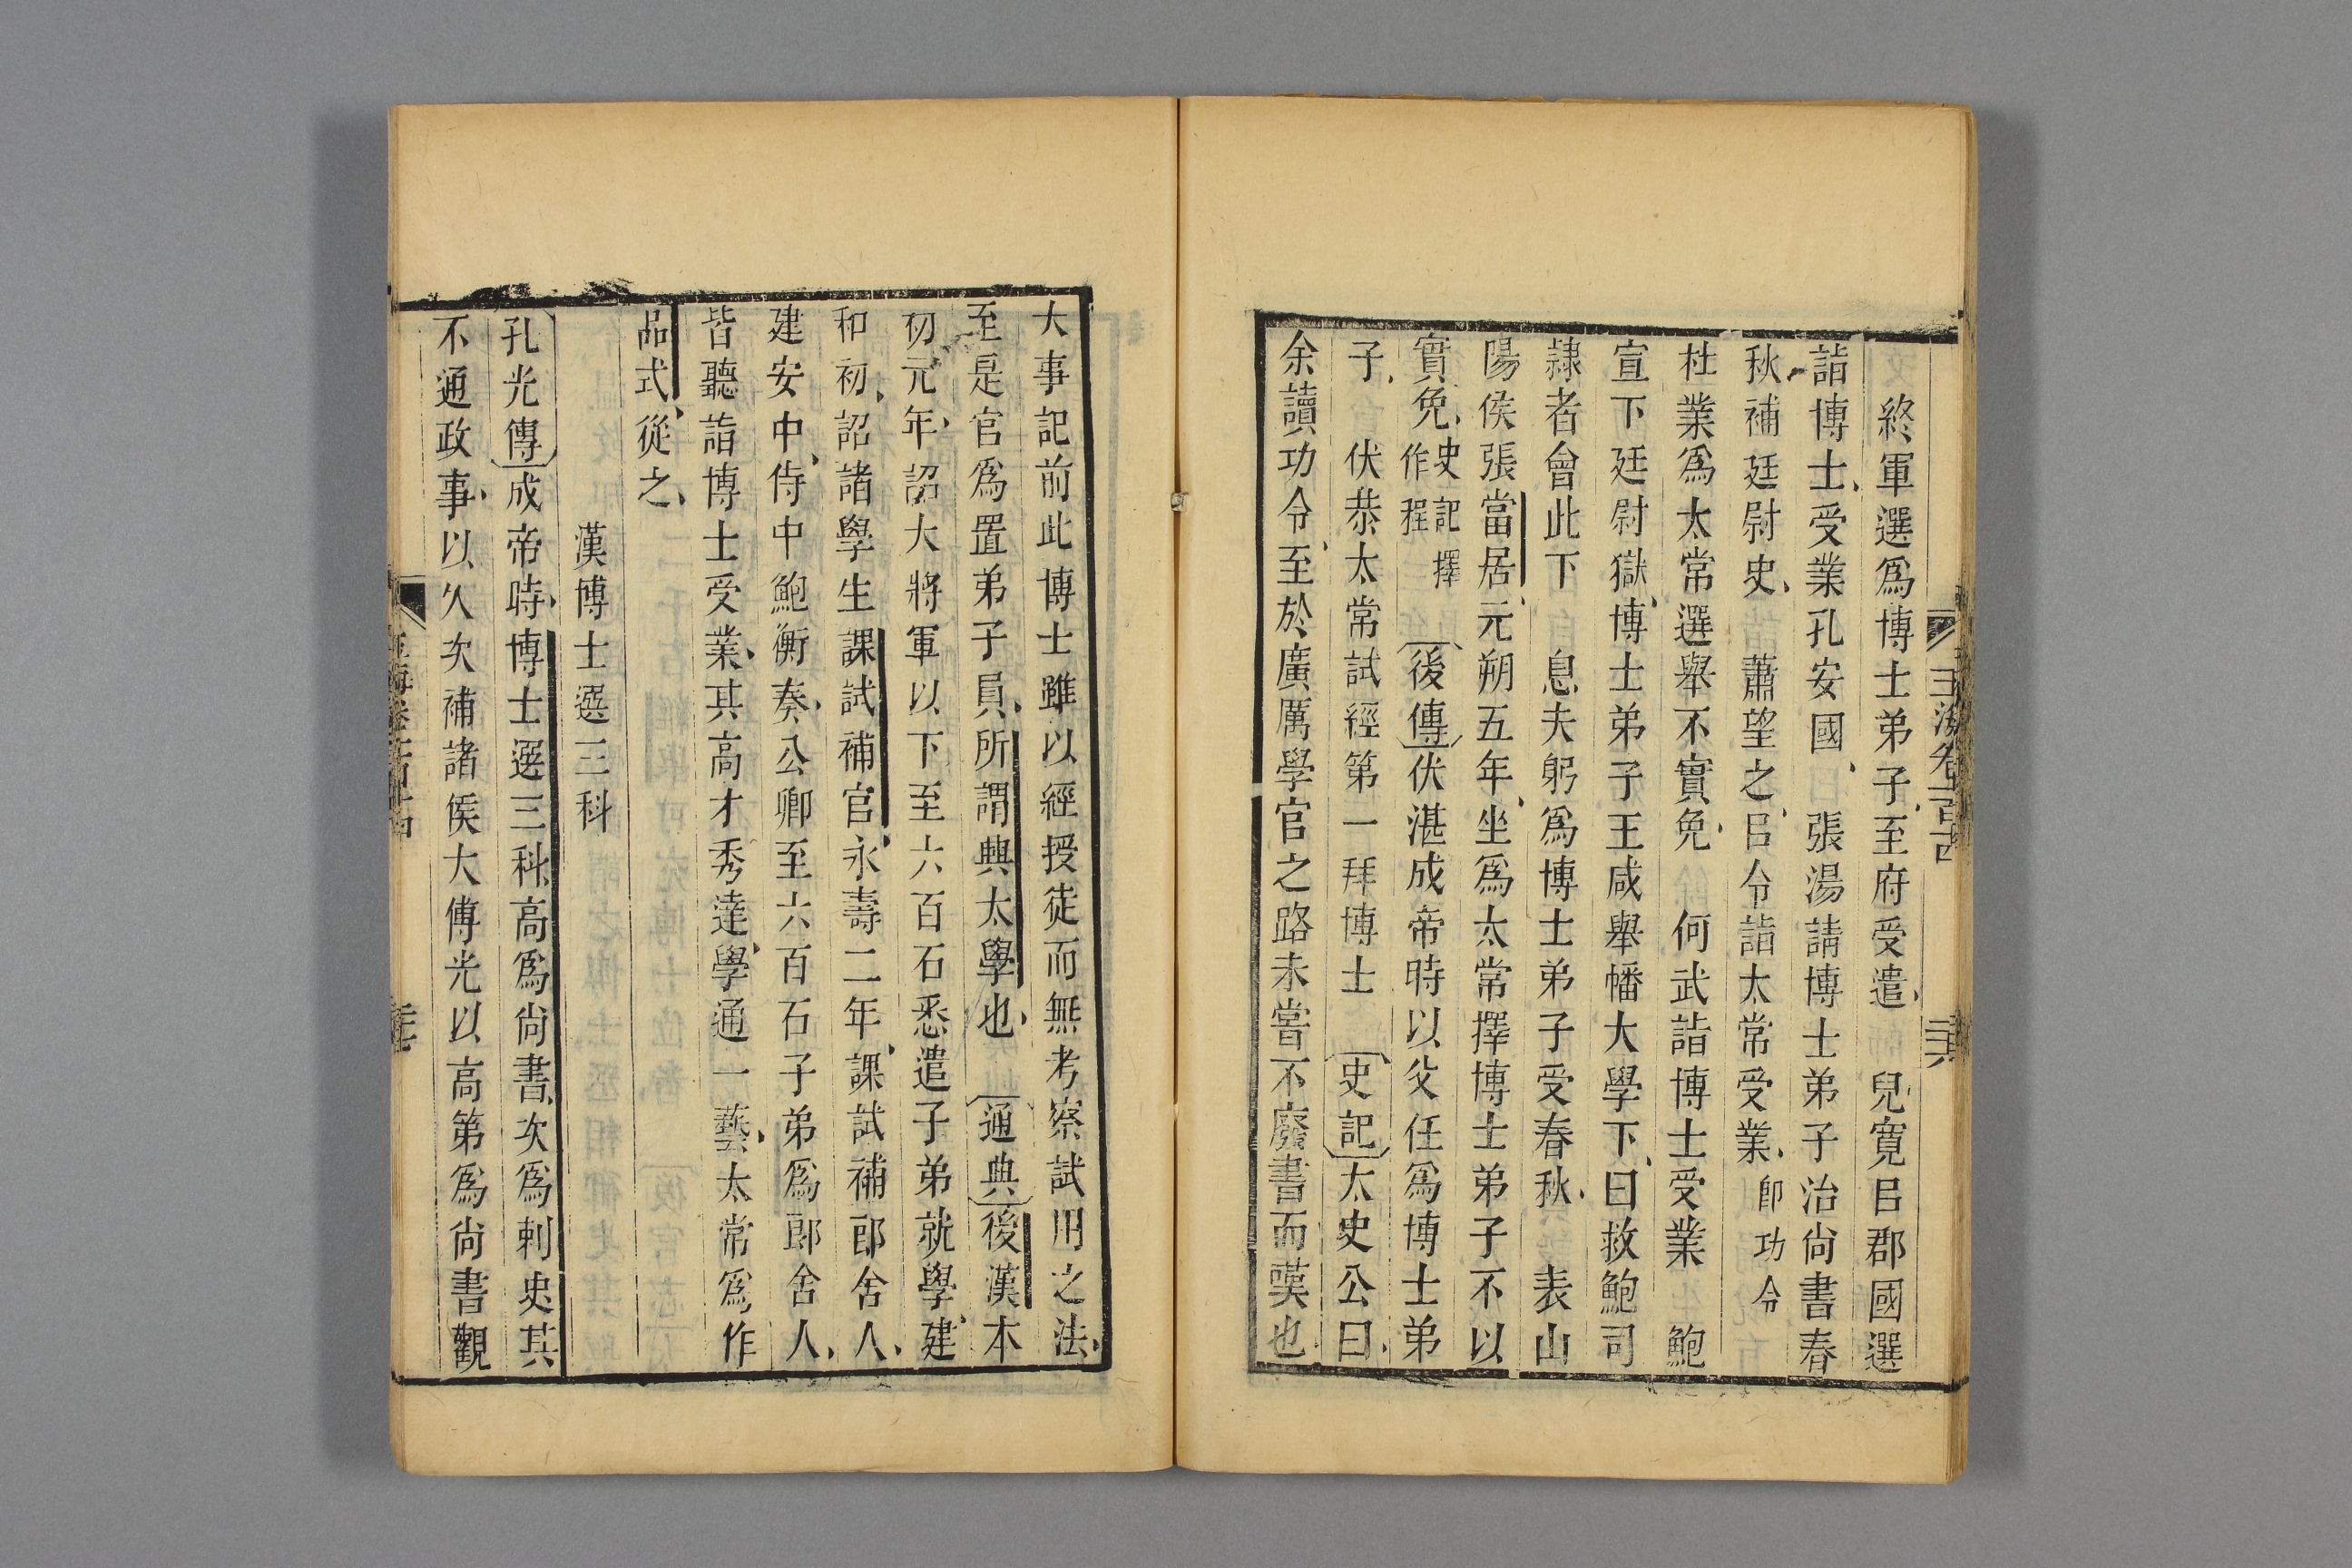 終軍選爲博士弟子至府受遣　兒寬㠯郡國選
詣博士受業孔安國　張湯請博士弟子治尙書春
秋補廷尉史　蕭望之㠯令詣太常受業卽功令
杜業爲太常選舉不實免　何武詣博士受業　鮑
宣下廷尉獄博士弟子王咸舉幡大學下曰救鮑司
隷者會此下　息夫躬爲博士弟子受春秋　表山
陽侯張當居元朔五年坐爲太常擇博士弟子不以
實免史記擇作程　後傳伏湛成帝時以父任爲博士弟
子　伏恭太常試經第一拜博士　史記太史公曰
余讀功令至於廣厲學官之路未嘗不廢書而嘆也
玉海卷一百十四
大事記前此博士雖以經授徒而無考察試用之法
至是官爲置弟子員所謂興太學也　通典後漢本
初元年詔大將軍以下至六百石悉遣子弟就學建
和初詔諸學生課試補官永壽二年課試補郎舍人
建安中侍中鮑衡奏公卿至六百石子弟爲郎舍人
皆聽詣博士受業其高才秀達學通一藝太常爲作
品式從之
漢博士選三科
孔光傳成帝時博士選三科高爲尙書次爲刺史其
不通政事以久次補諸侯大傅光以高第爲尙書觀